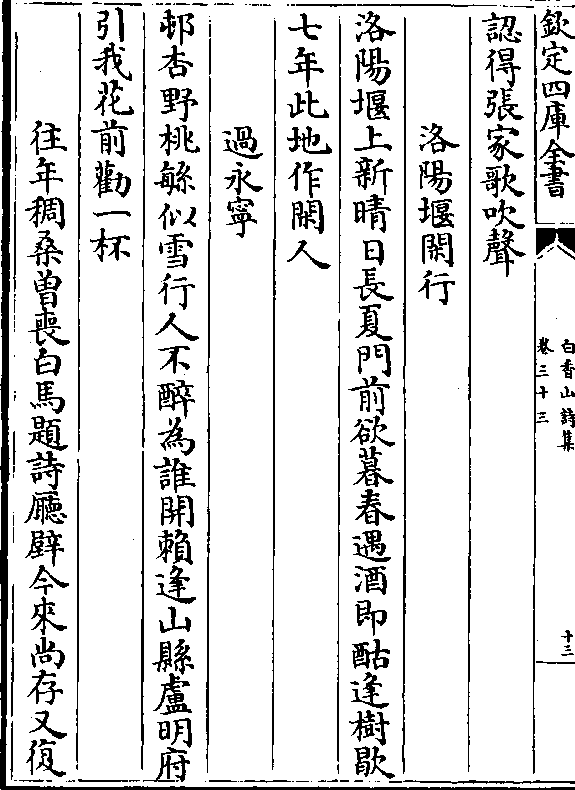 欽定四庫全書
白香山詩集
卷三十三
十三
認得張家歌吹聲
洛陽堰閑行
洛陽堰上新晴日長夏門前欲暮春遇酒即酤逢樹歇
七年此地作閑人
過永寧
邨杏野桃繁似雪行人不醉為誰開賴逢山縣盧明府
引我花前勸一杯
往年稠桑曽喪白馬題詩廳壁今來尚存又復